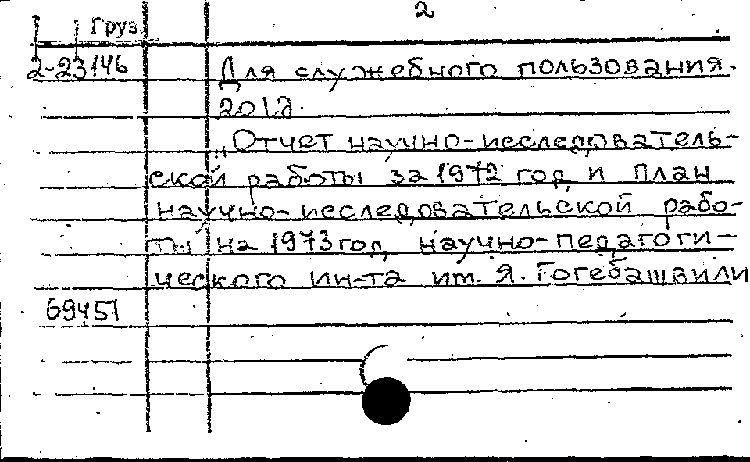 2
Груз.
2-23146
Для служебного пользования.
201д.
„Отчет научно-исследователь-
ской работы за 1972 год и план
научно-исследовательской рабо-
ты на 1973 год, научно-педагоги-
ческого ин-та им. Я. Гогебашвили
69451